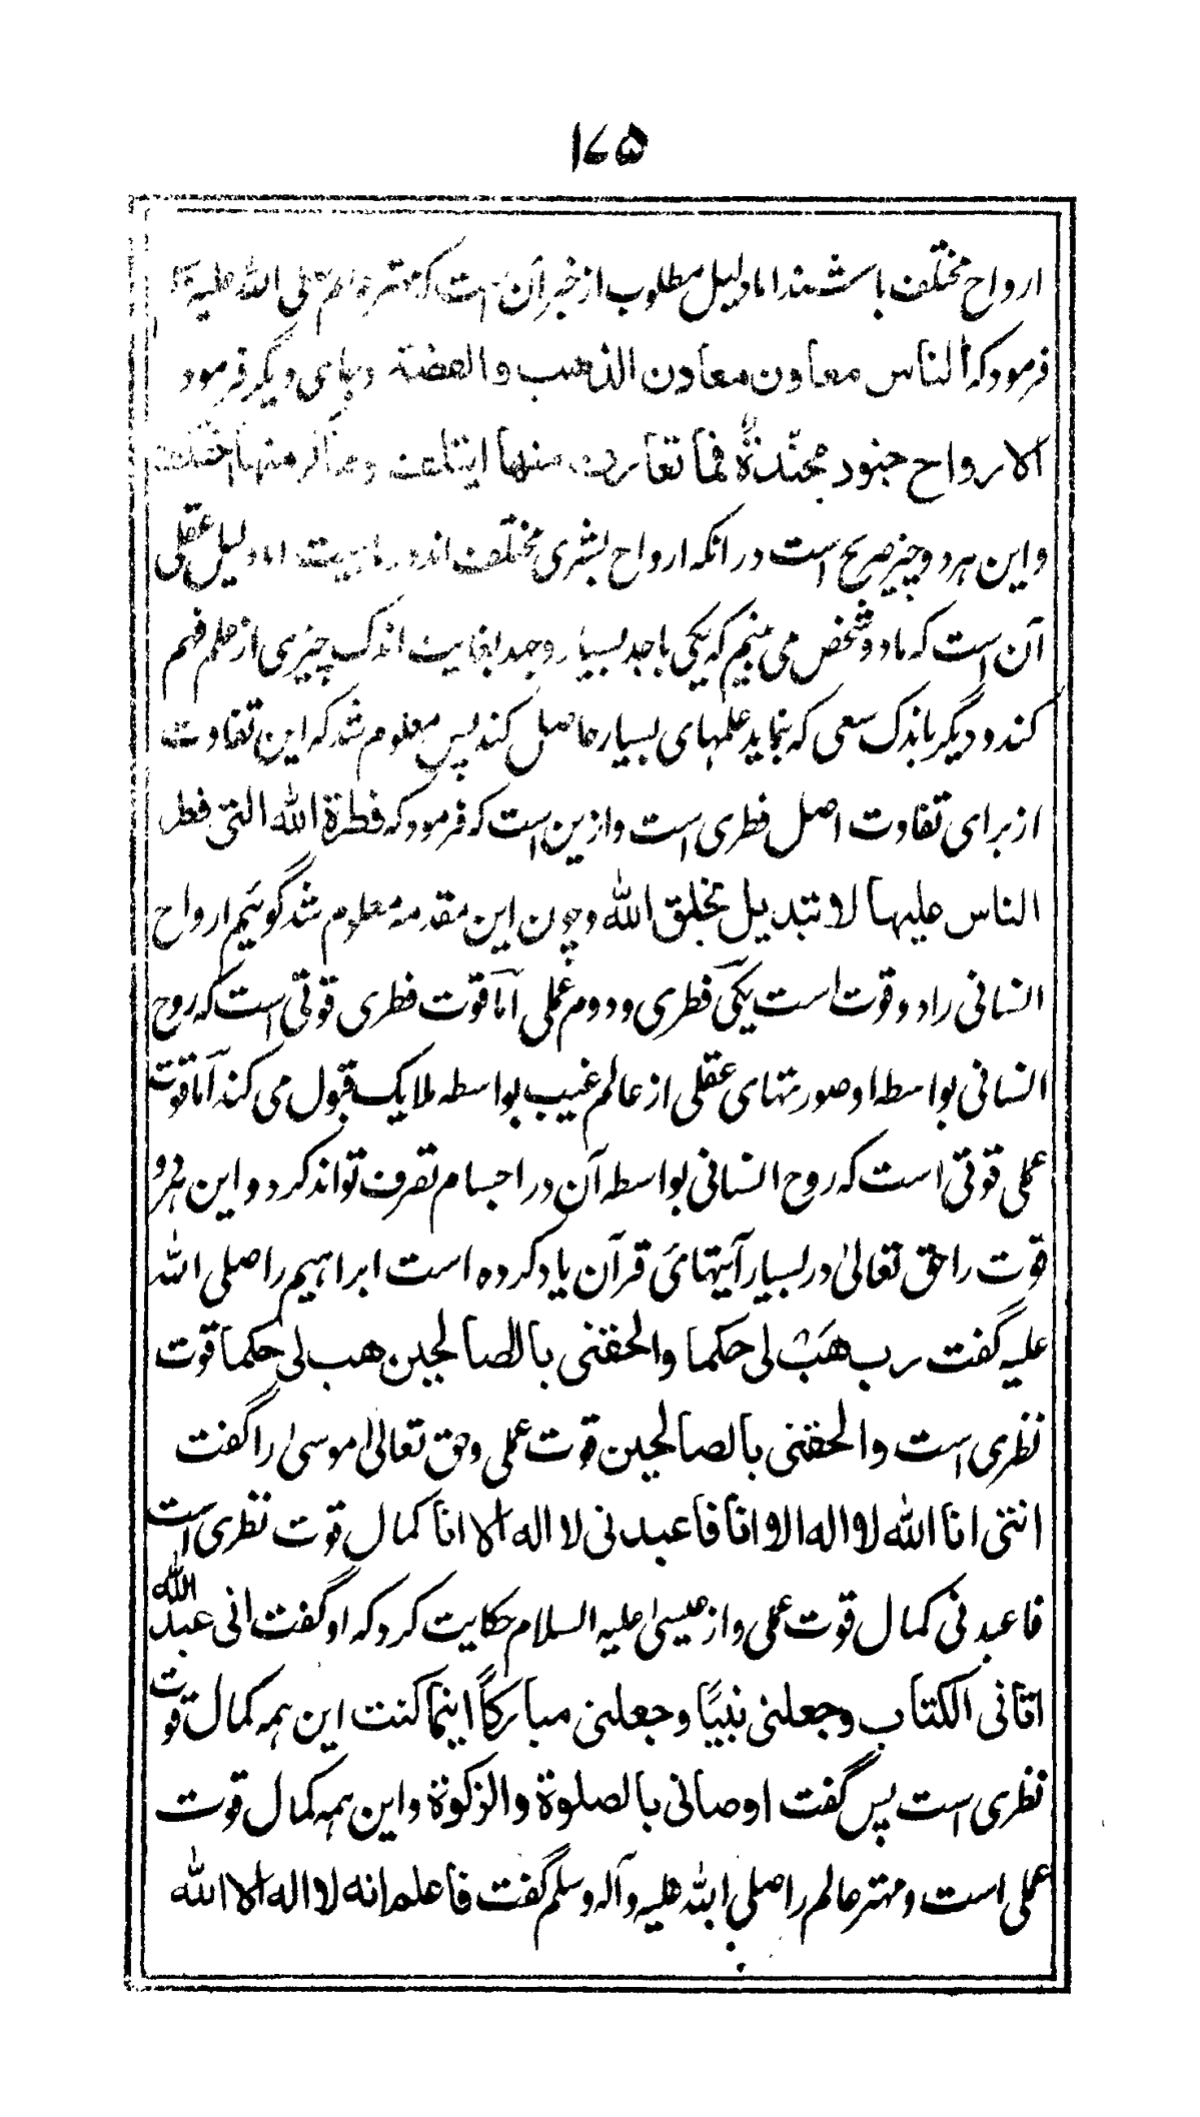 ۱۷۵
ارواح مختلف باشند اما دلیل مطلوب از خبر آن است که مهتر عالم صلی الله علیه
فرمود که الناس معاون معادن الذهب والفضة و جای دیگر فرمود
الارواح جنود مجندة فما تعارف منها ایتلف وما تناکر منها اختلف
و این هر دو چیز صریح است در انکه ارواح بشری مختلف اند در ماهیت اما دلیل عقلی
آن است که ما دو شخص می بینیم که یکی با جد بسیار و جهد بغایت اندک چیزی از علم فهم
کند و دیگر باندک سعی که بنماید علمهای بسیار حاصل کند پس معلوم شد که این تفاوت
از برای تفاوت اصل فطری است و ازین است که فرمود که فطرة الله التی فطر
الناس علیها لا تبدیل لخلق الله و چون این مقدمه معلوم شد گوئیم ارواح
انسانی را دو قوت است یکی فطری و دوم عملی اما قوت فطری قوتی است که روح
انسانی بواسطه او صورتهای عقلی از عالم غیب بواسطه ملایک قبول می کند اما قوت
عملی قوتی است که روح انسانی بواسطه آن در اجسام تصرف تواند کرد و این هر دو
قوت را حق تعالیٰ در بسیار آیتهائ قرآن یاد کرده است ابراهیم را صلی الله
علیه گفت رب هَبْ لی حکما والحقنی بالصالحین هب لی حکما قوت
نظری است والحقنی بالصالحین قوت عملی وحق تعالیٰ موسیٰ را گفت
اننی انا الله لا اله الا انا فاعبدنی لا اله الا انا کمال قوت نظری است
فاعبدنی کمال قوت عملی و از عیسیٰ علیه السلام حکایت کرد که او گفت انی عبد الله
اتانی الکتاب وجعلنی نبیًا وجعلنی مبارکًا اینما کنت این همه کمال قوت
نظری است پس گفت اوصانی بالصلوة والزکوة و این همه کمال قوت
عملی است و مهتر عالم را صلی الله علیه و آله وسلم گفت فاعلم انه لا اله الا الله